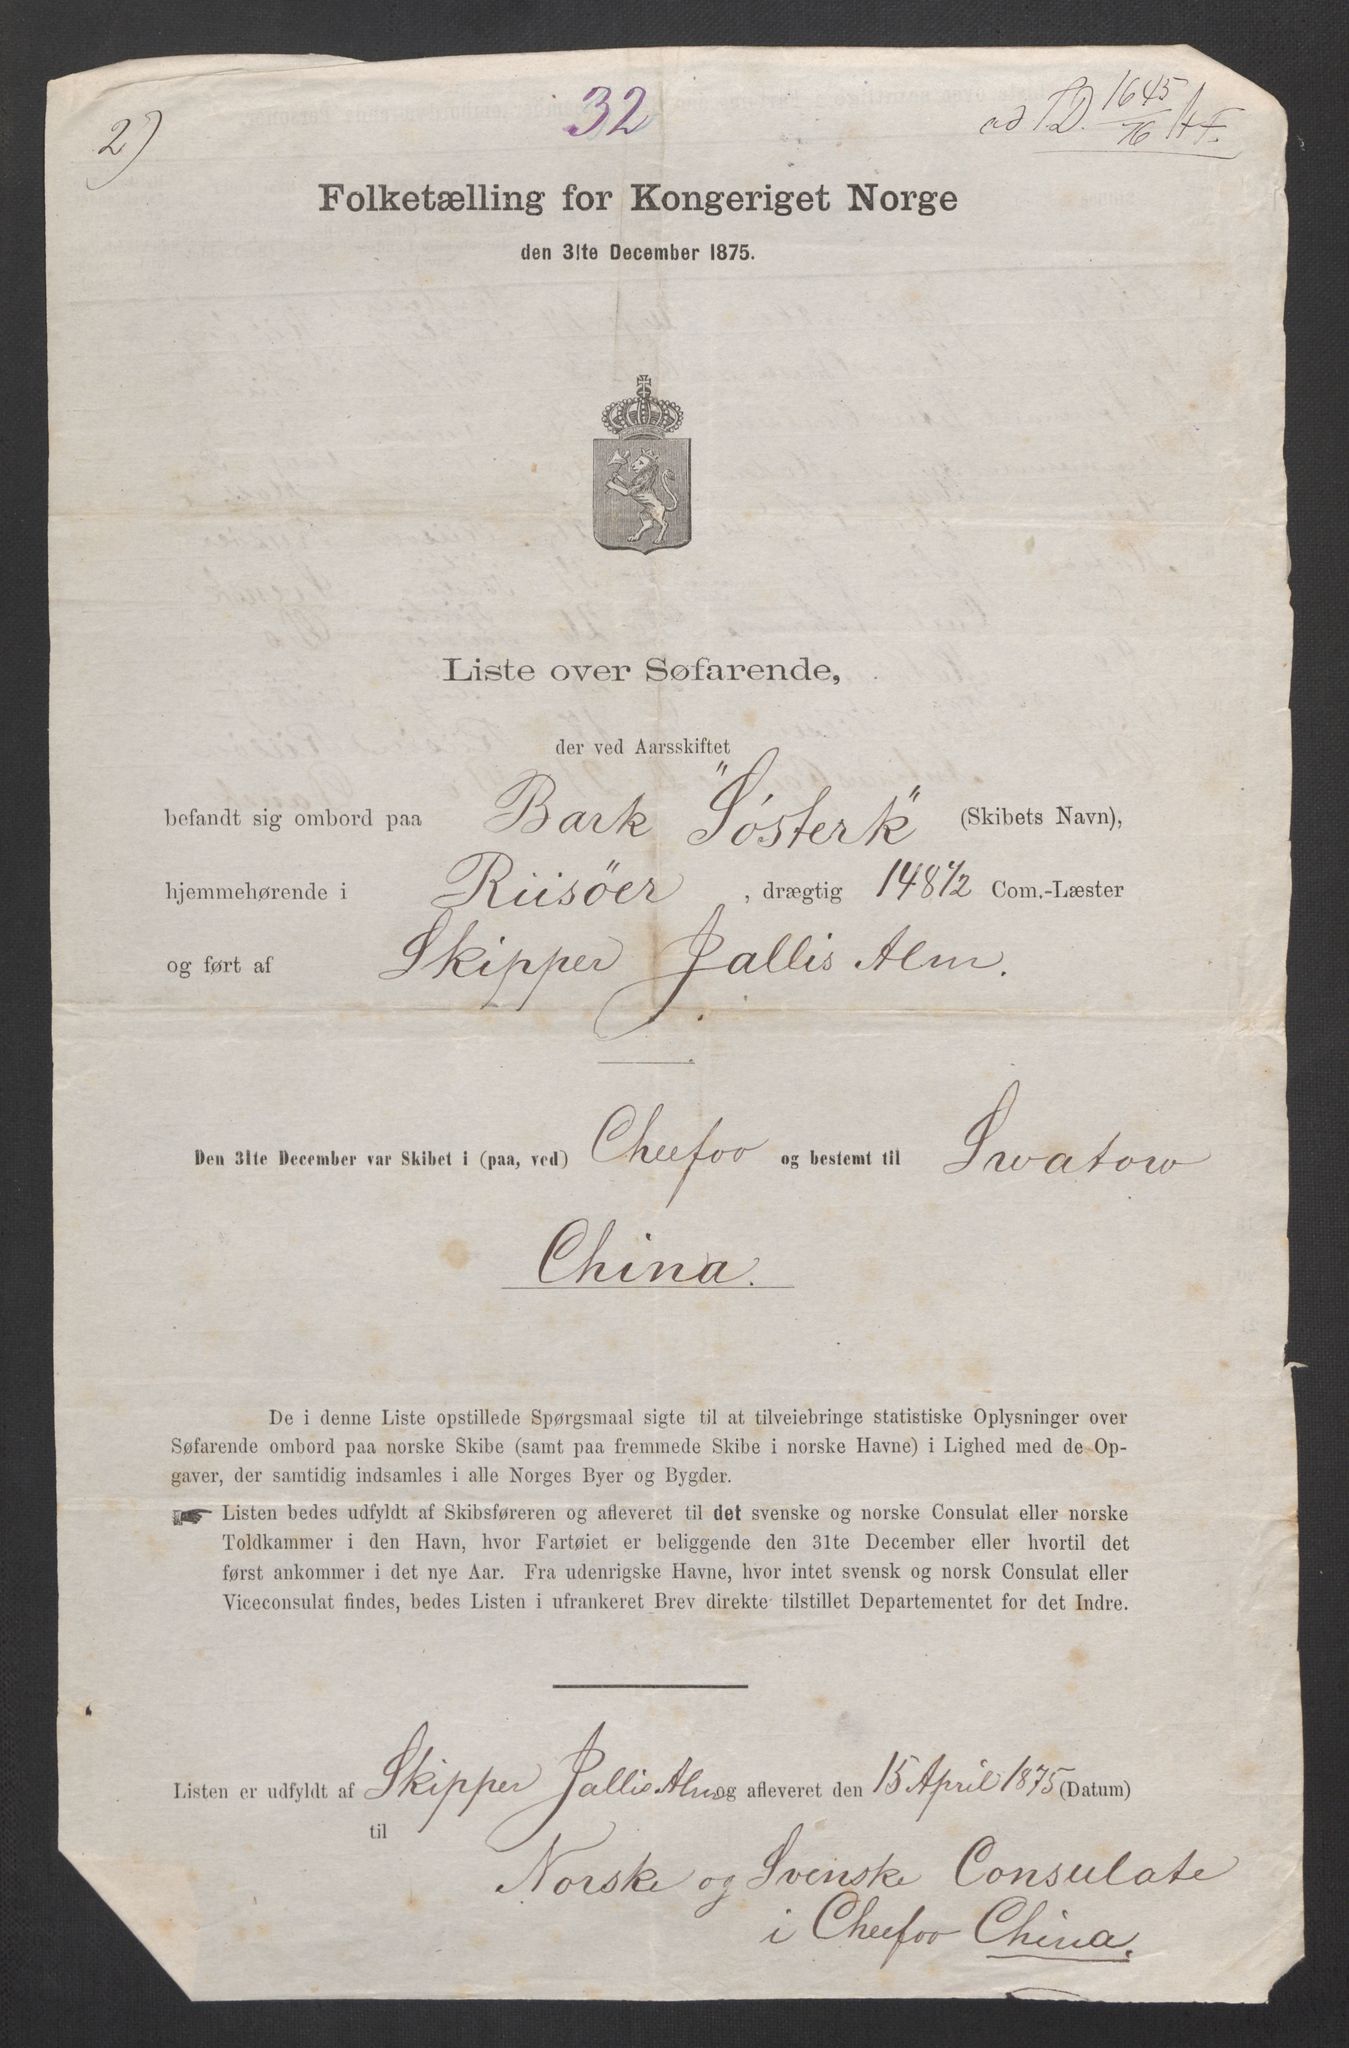 2)
32
ad ID. 1645/76 A F.
Folketælling for Kongeriget Norge
den 31te December 1875.
Liste over Søfarende,
der ved Aarsskiftet
befandt sig ombord paa Bark "Sösterk" (Skibets Navn),
hjemmehørende i Riisöer, drægtig 148 1/2 Com.-Læster
og ført af Skipper Jallis Alm.
Den 31te December var Skibet i (paa, ved) Cheefoo og bestemt til Swatow
China.
De i denne Liste opstillede Spørgsmaal sigte til at tilveiebringe statistiske Oplysninger over
Søfarende ombord paa norske Skibe (samt paa fremmede Skibe i norske Havne) i Lighed med de Op-
gaver, der samtidig indsamles i alle Norges Byer og Bygder.
☛ Listen bedes udfyldt af Skibsføreren og afleveret til det svenske og norske Consulat eller norske
Toldkammer i den Havn, hvor Fartøiet er beliggende den 31te December eller hvortil det
først ankommer i det nye Aar. Fra udenrigske Havne, hvor intet svensk og norsk Consulat eller
Viceconsulat findes, bedes Listen i ufrankeret Brev direkte tilstillet Departementet for det Indre.
Listen er udfyldt af Skipper Jallis Alm og afleveret den 15 April 1875 (Datum)
til
Norske og Svenske Consulate
i Cheefoo China.